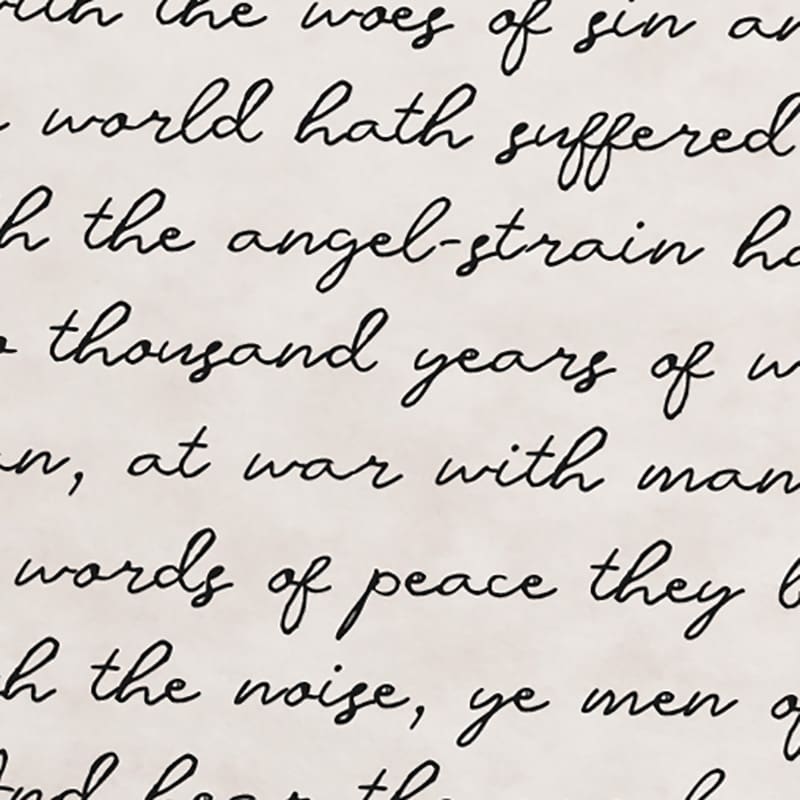 with the woes of sin an
world hath suffered
h the angel-strain ha
thousand years of w
an, at war with man
words of peace they b
h the noise, ye men of
And hear the